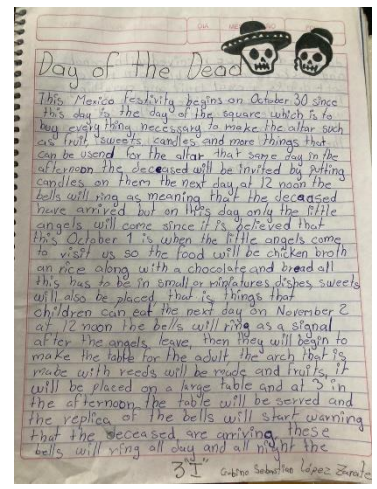 Day of the Dead
This Mexico festivity begins on October 30 since
this day is the day of the square which is to
buy everything necessary to make the altar such
as fruit sweets, candles and more things that
can be usend for the altar that same day in the
afternoon the deceased will be invited by putting
candles on them the next day at 12 noon the
bells will ring as meaning that the deceased
have arrived but on this day only the little
angels will come since it is believed that
this October 1 is when the little angels come
to visit us so the food will be chicken broth
an rice along with a chocolate and bread all
this has to be in small or miniatures dishes sweets
will also be placed, that is, things that
children can eat the next day on November 2
at 12 noon the bells will ring as a signal
after the angels leave, then they will begin to
make the table for the adult, the arch that is
made with reeds will be made and fruits, it
will be placed on a large table and at 3 in
the afternoon the table will be served and
the replica of the bells will start warning
that the deceased are arriving these
bells will ring all day and all night the
3°"I" Gabino Sebastian López Zarate